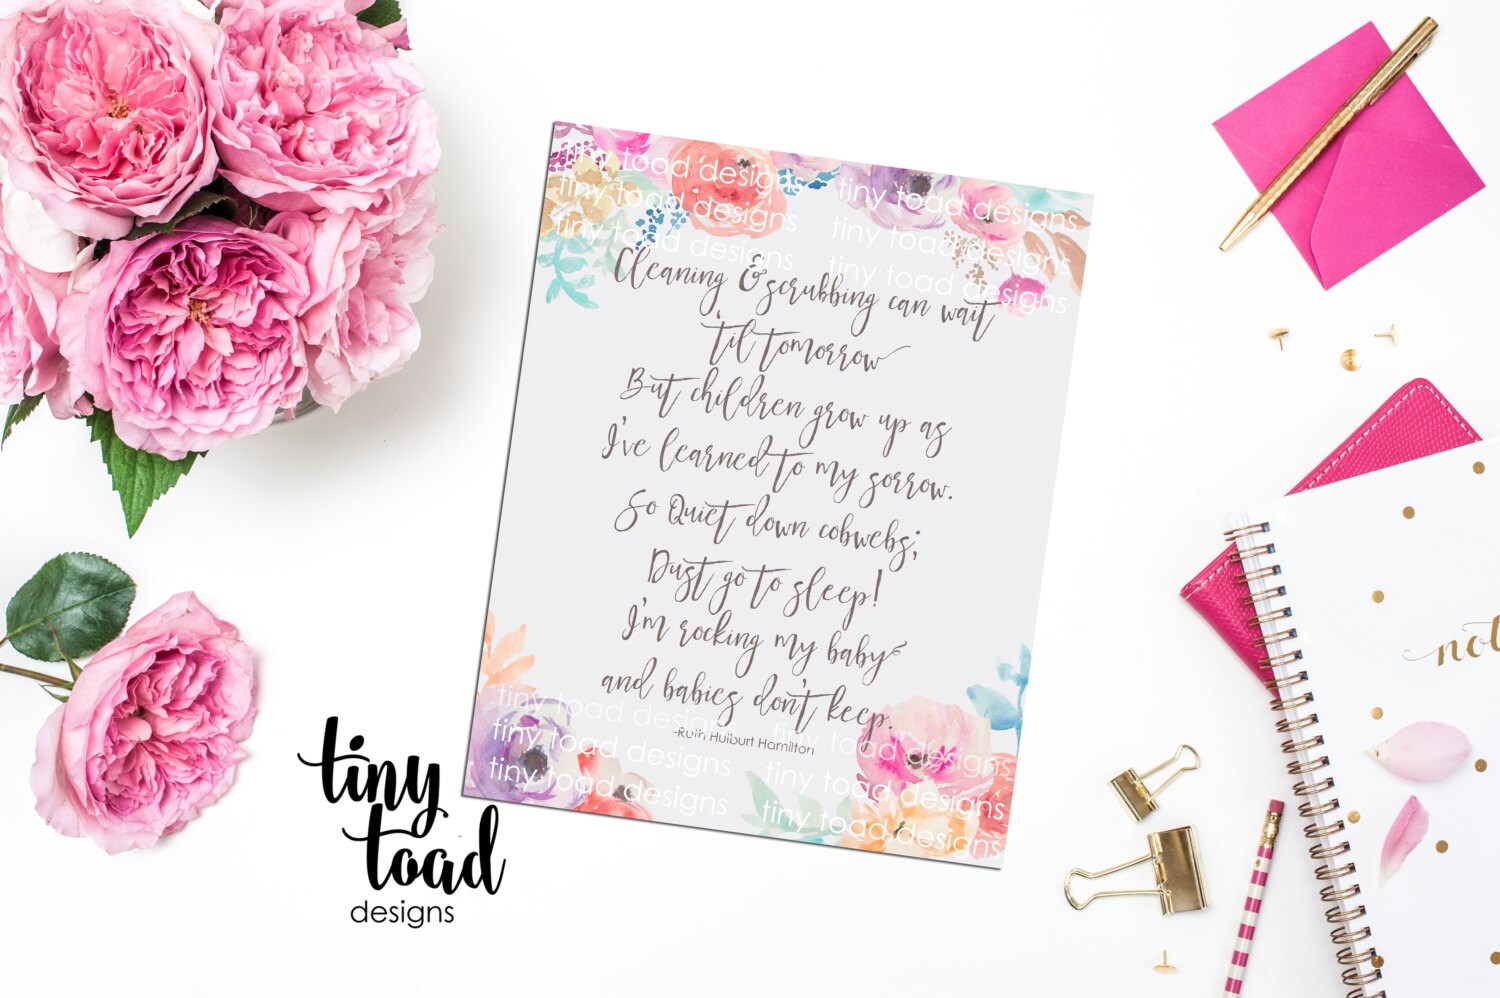 tiny toad designs tiny toad designs
tiny toad designs tiny toad designs
tiny toad designs tiny toad designs
Cleaning & scrubbing can wait
'til tomorrow
But children grow up as
I've learned to my sorrow.
So Quiet down cobwebs;
Dust go to sleep!
I'm rocking my baby
and babies don't keep.
-Ruth Hulburt Hamilton
tiny toad designs tiny toad designs
tiny toad designs tiny toad designs
tiny toad designs tiny toad designs
tiny
toad
designs
not